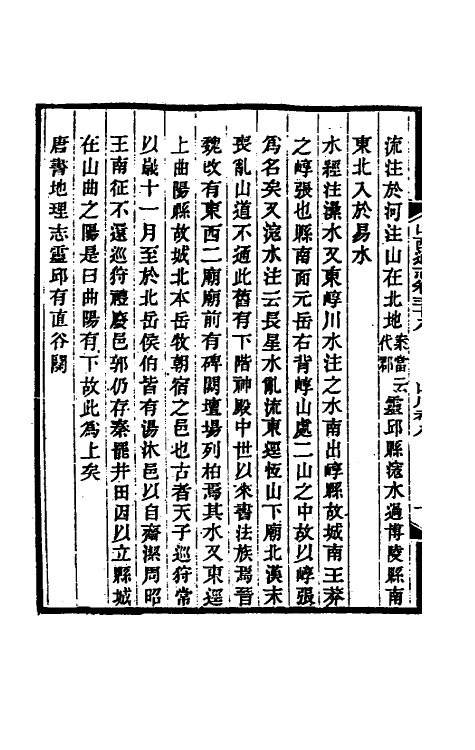 流注於河注山在北地案當云代郡靈邱縣滱水過博陵縣南
東北入於易水
水經注㶟水又東崞川水注之水南出崞縣故城南王莽
之崞張也縣南面元岳右背崞山處二山之中故以崞張
為名矣又滱水注云長星水亂流東逕恆山下廟北漢末
喪亂山道不通此舊有下階神殿中世以來書法族焉晉
魏改有東西二廟廟前有碑闕壇場列柏焉其水又東逕
上曲陽縣故城北本岳牧朝宿之邑也古者天子巡狩常
以歲十一月至於北岳侯伯皆有湯沐邑以自齋潔周昭
王南征不還巡狩禮廢邑郭仍存秦罷井田因以立縣城
在山曲之陽是曰曲陽有下故此為上矣
唐書地理志靈邱有直谷關